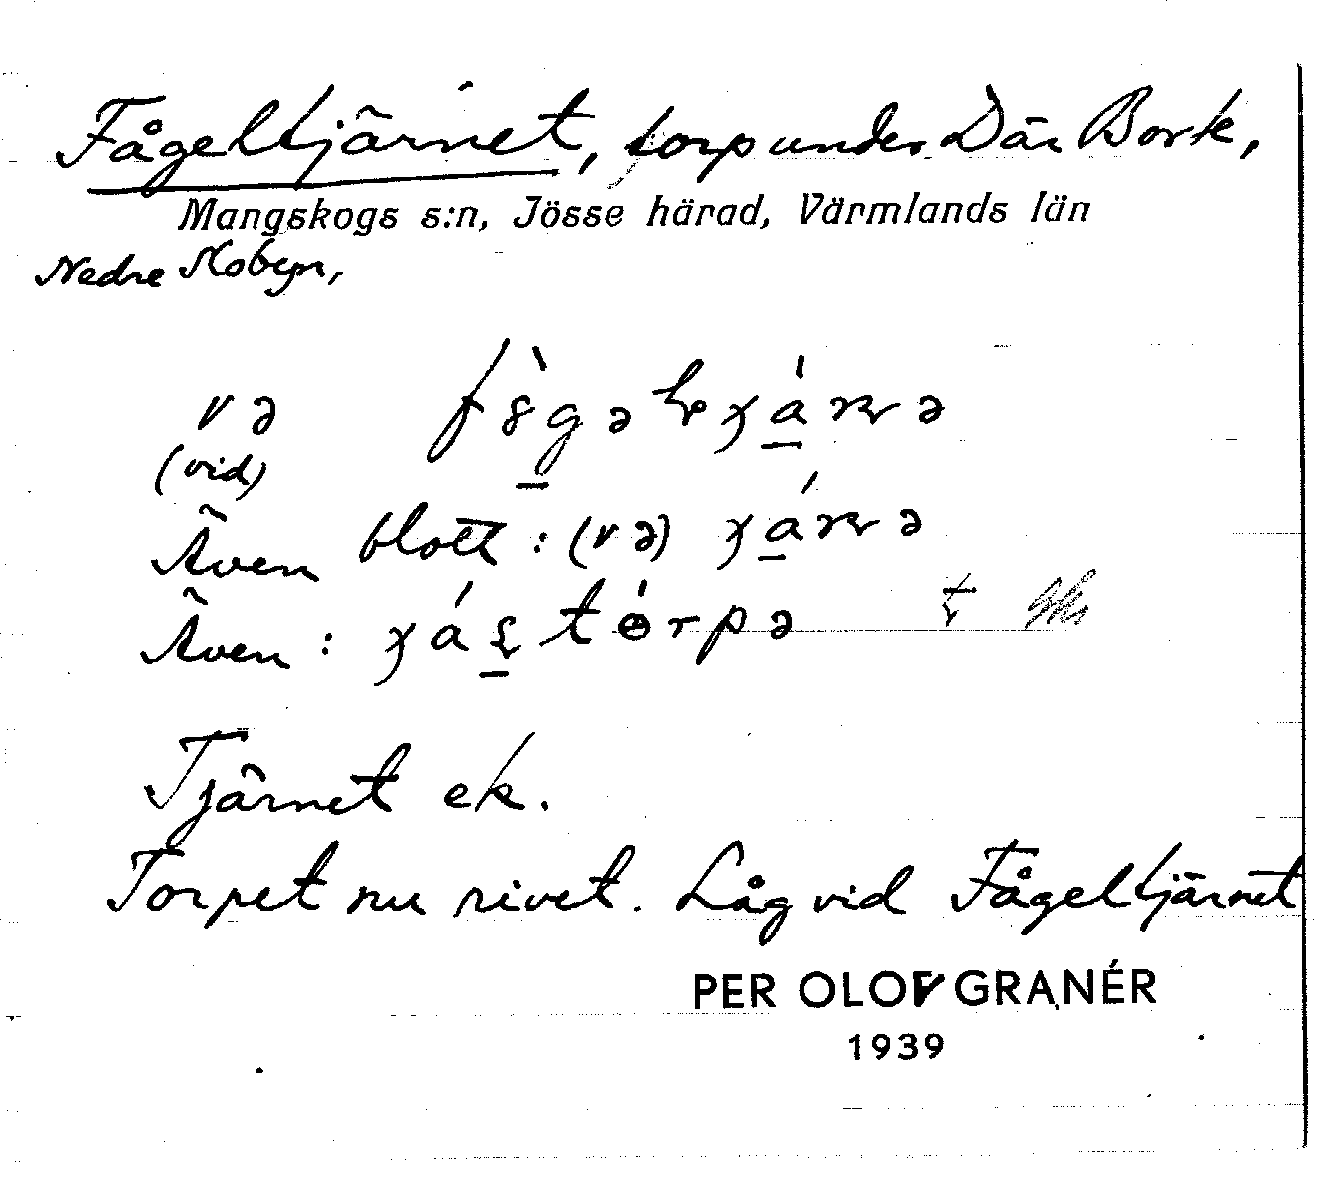 Fågeltjärnet, torp under Där Bork,
Mangskogs s:n, Jösse härad, Värmlands län
Nedre Mobyn,
və
(vid)
Även blott: (və)
Även:
Tjärnet ek.
Torpet nu rivet. Låg vid Fågeltjärnet
PER OLOV GRANÉR
1939